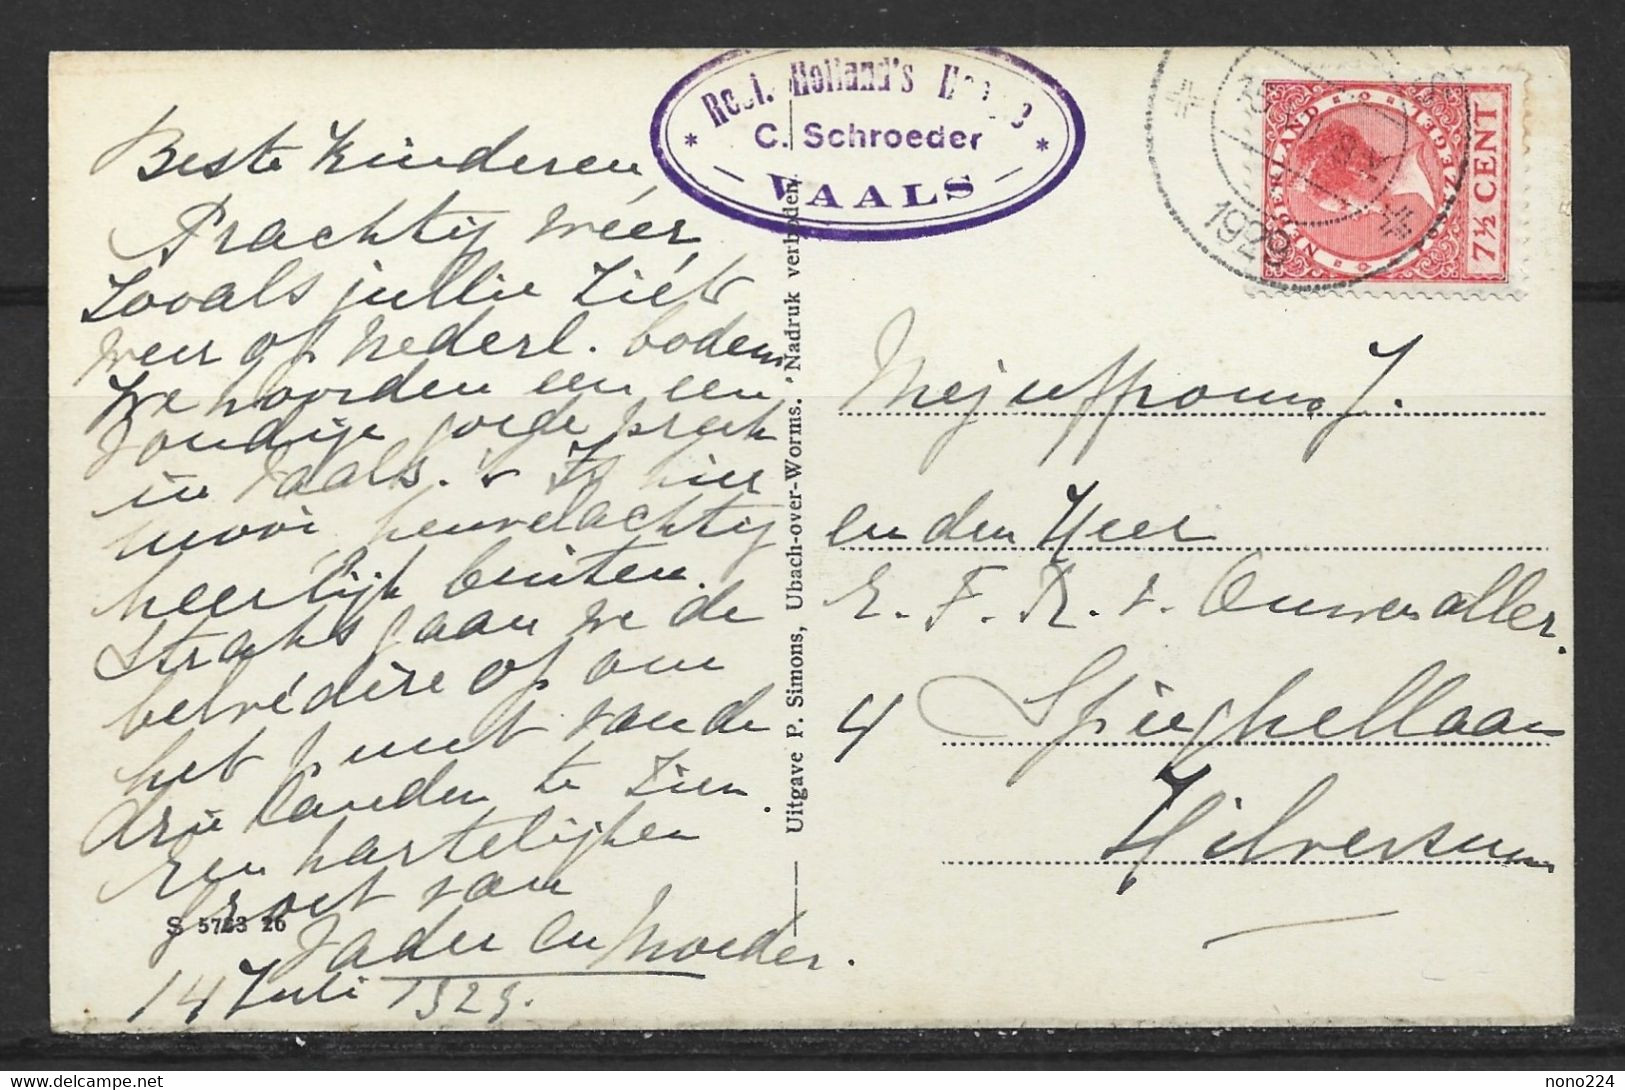 Beste Kinderen,
Prachtig weer
Zooals jullie ziet
weer op Nederl. bodem
We hoorden een een
goede preek
in Vaals. Is hier
mooi heuvelachtig
heerlijk buiten.
Straks gaan we de
belvédère op om
het punt van de
drie landen te zien.
Een hartelijken
groet van
Vader en Moeder.
14 Juli 1929.
S 5723 26
Uitgave P. Simons, Ubach-over-Worms. Nadruk verboden.
Rest. Holland's
* C. Schroeder *
— VAALS —
1929
NEDERLAND
7½ CENT
Mejuffrouw J.
en den Heer
E. F. R. v. Ouwenaller.
4 Spieghellaan
Hilversum
nono224